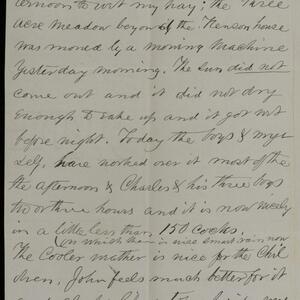 ternoon to wet my hay; the three
acre meadow beyond the Henson house
was mowed by a mowing Machine
Yesterday morning. The Sun did not
come out and it did not dry
enough to rake up and it got wet
before night. Today the boys & my
self, have worked over it most of
the afternoon & Charles & his three boys
two or three hours and it is now nicely
in a little less than 150 Cocks.
on which there is nice small rain now
The Cooler mother is nice for the Chil
dren. John feels much better for it